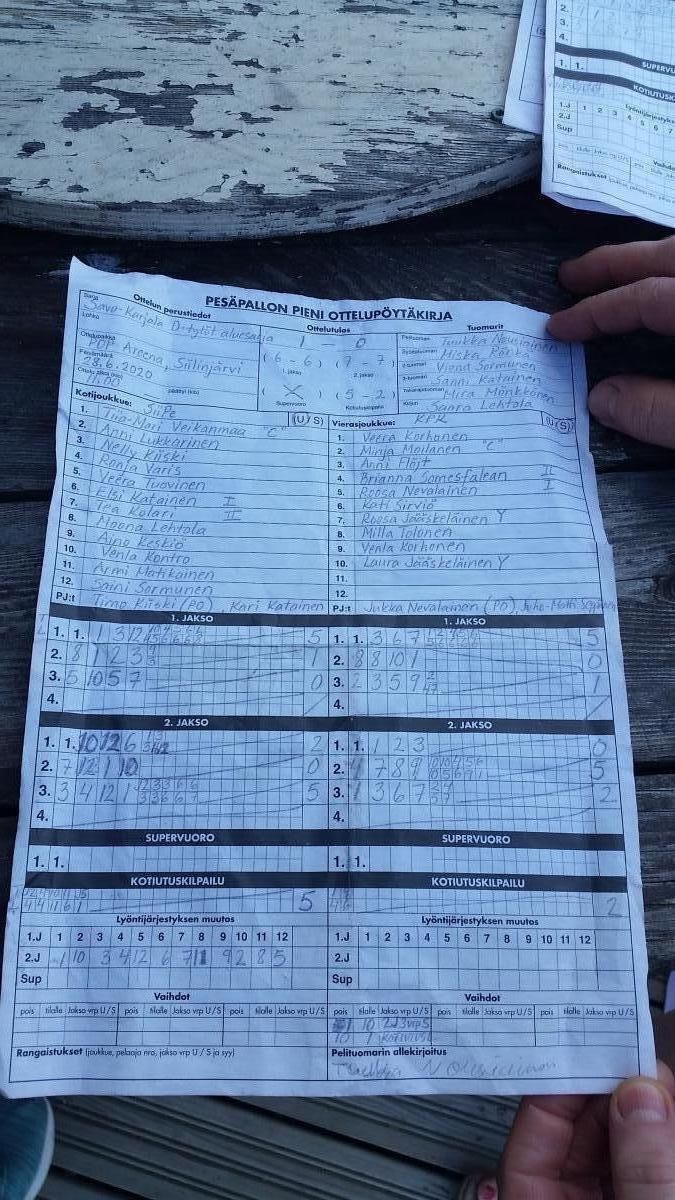 PESÄPALLON PIENI OTTELUPÖYTÄKIRJA
Sarja Ottelun perustiedot Ottelutulos Tuomarit
Savo-Karjala D-tytöt aluesarja 1 - 0
Lohko
Ottelupaikka
Areena, Siilinjärvi
(6 - 6) (7 - 7)
1. jakso 2. jakso
Päivämäärä
28.6.2020
(X) (5 - 2)
Supervuoro Kotiutuskilpailu
Pelituomari Tuukka Nousiainen
Syöttötuomari Miska Ronka
2-tuomari Vend Sormunen
3-tuomari Sanni Katainen
Takarajatuomari Mira Mönkkönen
Kirjuri Saara Lehtola
Kotijoukkue: SiiPe (U/S)
1. Tiia-Mari Veikanmaa "C"
2. Anni Lukkarinen
3. Nelly Kiiski
4. Ronja Varis
5. Veera Tuovinen
6. Elsi Katainen I
7. Tea Kolari II
8. Moona Lehtola
9. Aino Keskiö
10. Venla Kontro
11. Armi Matikainen
12. Saini Sormunen
PJ:t Timo Kiiski (PO), Kari Katainen
Vierasjoukkue: KPR (U/S)
1. Veera Korhonen
2. Minja Moilanen "C"
3. Anni Flöjt
4. Brianna Somesfalean II
5. Roosa Nevalainen I
6. Kati Sirviö
7. Roosa Jääskeläinen Y
8. Milla Tolonen
9. Venla Korhonen
10. Laura Jääskeläinen Y
11.
12.
PJ:t Jukka Nevalainen (PO),
1. JAKSO
1. 1. 1 3 12 5
2. 8 1 2 3 1
3. 5 10 5 7 0
4.
1. JAKSO
1. 1. 3 6 7 5
2. 8 8 10 1 0
3. 2 3 5 9 1
4.
2. JAKSO
1. 1. 10 12 6 2
2. 7 12 1 10 0
3. 3 4 12 1 5
4.
2. JAKSO
1. 1. 1 2 3 0
2. 4 7 8 9 5
3. 1 3 6 7 2
4.
SUPERVUORO
1. 1.
SUPERVUORO
1. 1.
KOTIUTUSKILPAILU
5
KOTIUTUSKILPAILU
2
Lyöntijärjestyksen muutos
1.J 1 2 3 4 5 6 7 8 9 10 11 12
2.J 1 10 3 4 12 6 7 11 9 2 8 5
Sup
Lyöntijärjestyksen muutos
1.J 1 2 3 4 5 6 7 8 9 10 11 12
2.J
Sup
Vaihdot
pois tilalle Jakso vrp U/S pois tilalle Jakso vrp U/S pois tilalle Jakso vrp U/S
Vaihdot
pois tilalle Jakso vrp U/S pois tilalle Jakso vrp U/S pois tilalle Jakso vrp U/S
10 1
Rangaistukset (joukkue, pelaaja nro, jakso vrp U / S ja syy)
Pelituomarin allekirjoitus
2.
3.
4.
1. 1.
1.J 1 2 3 4 5 6 7
2.J
Sup
Rangaistukset